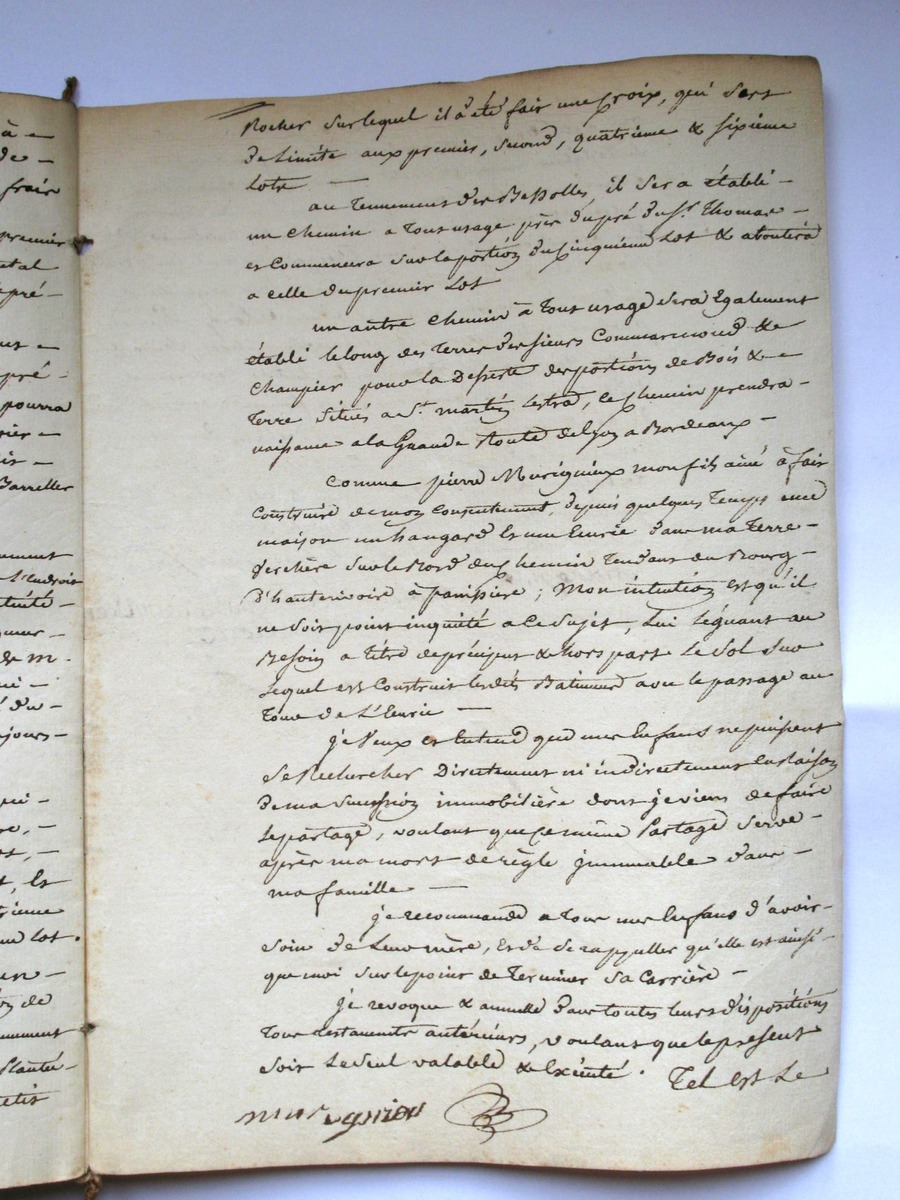 à —
de —
frais
premier
pré —
pré -
pourra
Barreller
l'endroit
jours —
et, Et
lot.
de
Rocher sur lequel il a été fait une croix, qui sert
de Limite aux premier, second, quatrième & sixième
Lots —
au Tennement des Bessolles, il sera établi —
un chemin a Tout usage près du pré du Sr. Thomas —
et Commencera sur la portion du cinquième Lot & aboutira
a celle du premier Lot
un autre chemin à Tout usage sera Egalement
établi le long des Terres des sieurs Commarmond & de
Champier pour la Desserte des portions de Bois & —
Terre situés a St. martin Lestrad, ce chemin prendra —
naissance a la Grande Route de Lyon a Bordeaux —
Comme pierre Murigneux mon fils ainé à fait
Construire de mon Consentement, depuis quelques Temps une
maison un hangard Et une Ecurie dans ma Terre —
verchère sur le Bord du chemin Tendant du Bourg —
d'hauterivoire à panissière ; Mon intention est qu'il
ne soit point inquiété a ce sujet, Lui Léguant au
Besoin a Titre de préciput & hors part Le Sol sur
Lequel est Construit lesdits Batiments avec le passage au
Tour de L'Ecurie —
je Veux et Entend que mes Enfans ne puissent
se Rechercher Directement ni indirectement En Raison
de ma succession immobilière dont je viens de faire
Le partage, voulant que ce même Partage serve —
après ma mort de règle immuable dans —
ma famille —
je recommande a Tous mes Enfans d'avoir —
soin de Leur mère, Et de se rappeller qu'elle est ainsi —
que moi sur le point de Terminer sa Carrière —
je revoque & annulle dans toutes leurs dispositions
Tous testaments antérieurs, voulant que le present
soit Le seul valable & Exécuté. Tel est Le
murigneu